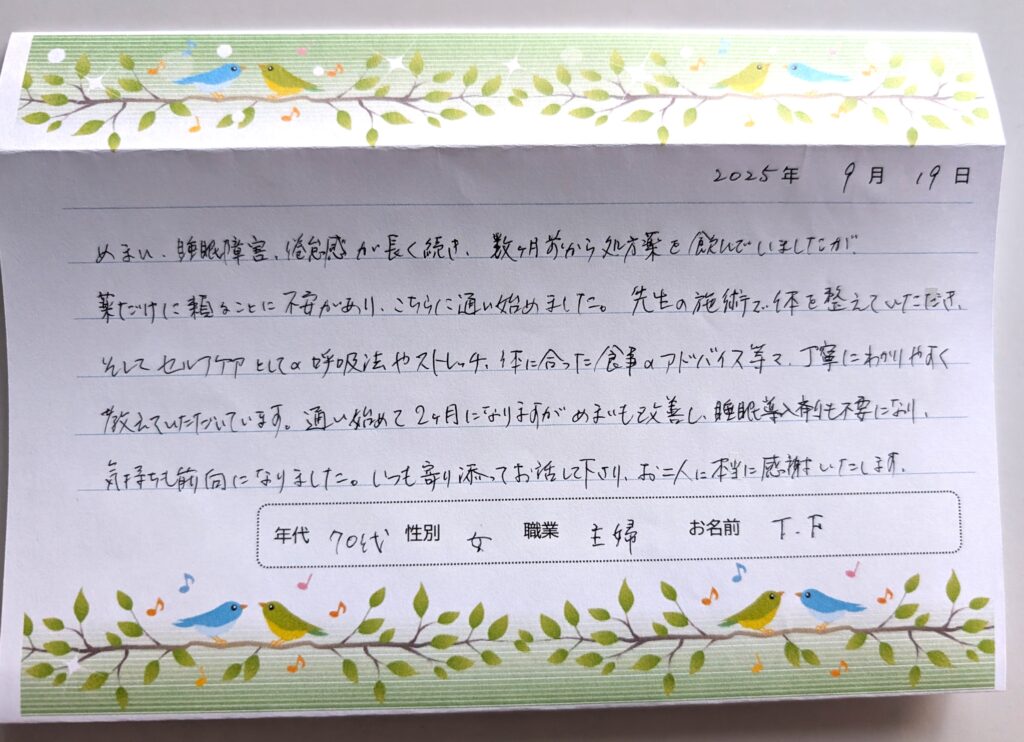 2025年 9月 19日
めまい、睡眠障害、倦怠感が長く続き、数ヶ月前から処方薬を飲んでいましたが、
薬だけに頼ることに不安があり、こちらに通い始めました。先生の施術で体を整えていただき、
そしてセルフケアとしての呼吸法やストレッチ、体に合った食事のアドバイス等々、丁寧にわかりやすく
教えていただいています。通い始めて2ヶ月になりますがめまいも改善し、睡眠導入剤も不要になり、
気持ちも前向になりました。いつも寄り添ってお話して下さり、お二人に本当に感謝いたします。
年代 70代 性別 女 職業 主婦 お名前 T.F